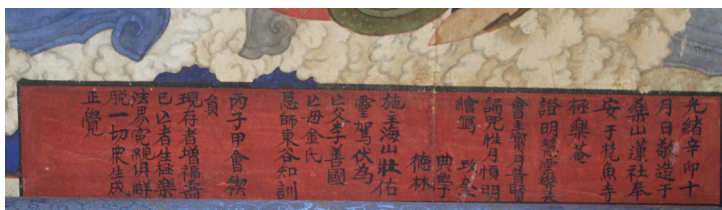 光緖辛卯十
月日敬造于
山漢社奉
安于梵魚寺
極樂菴
證明慧雲
會主寶月普賢
誦呪性月愼明
繪寫 玟奎
典學
德林
施主海山壯佑
靈駕伏為
亾父李善國
亾母金氏
恩師東谷知訓
丙子甲會禊
負
現存者增福壽
已亾者生極樂
法界寃親俱鮮
脫一切衆生成
正覺